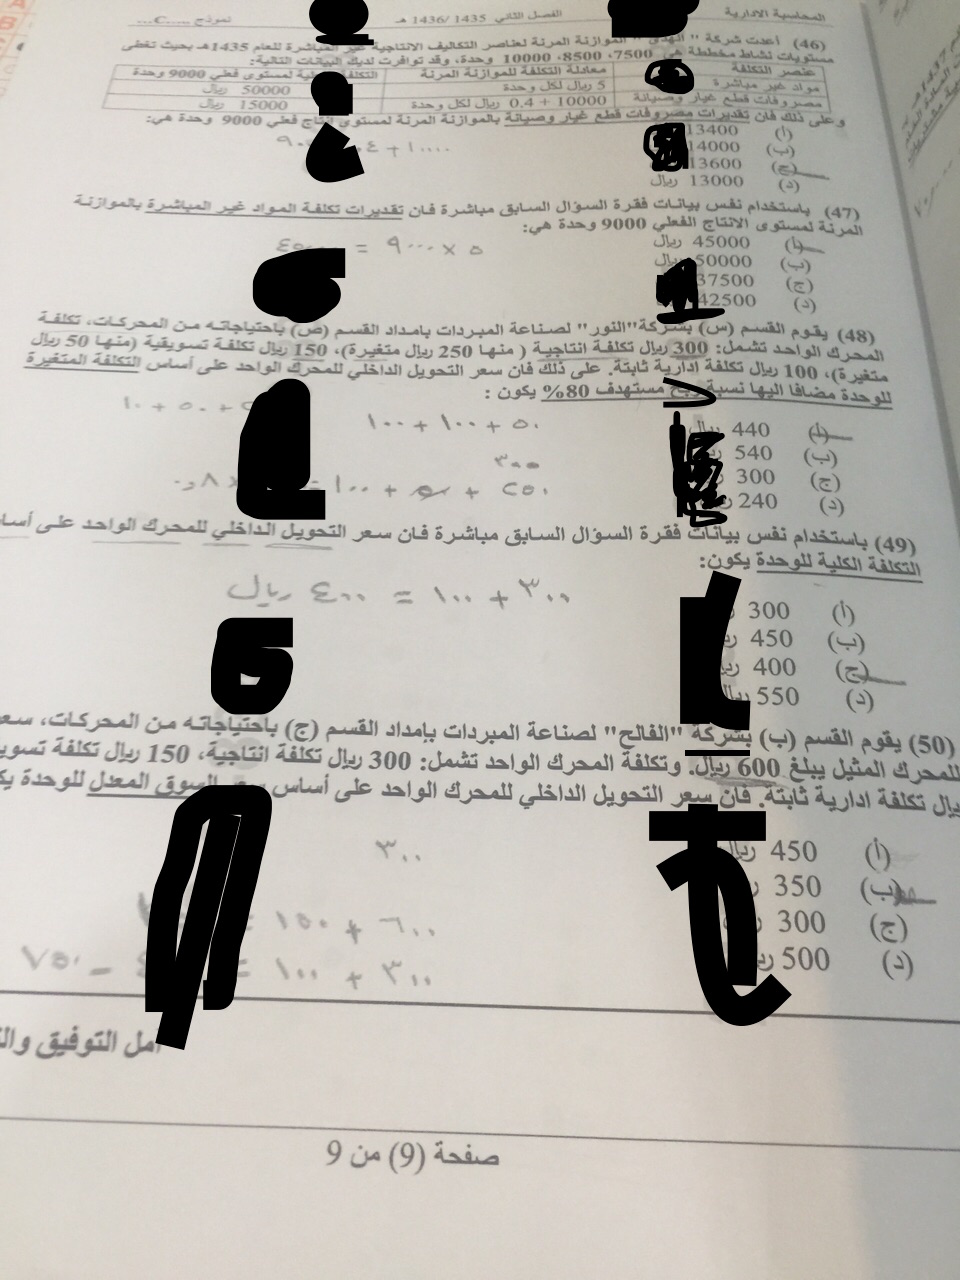 المحاسبة الادارية الفصل الثاني 1435/ 1436 هـ نموذج
(46) أعدت شركة " الهدى " الموازنة المرنة لعناصر التكاليف الانتاجية غير المباشرة للعام 1435هـ بحيث تغطي
مستويات نشاط مخططة هي 7500، 8500، 10000 وحدة، وقد توافرت لديك البيانات التالية:
عنصر التكلفة معادلة التكلفة للموازنة المرنة لمستوى فعلي 9000 وحدة
مواد غير مباشرة 5 ريال لكل وحدة 50000 ريال
مصروفات قطع غيار وصيانة 10000 + 0.4 ريال لكل وحدة 15000 ريال
وعلى ذلك فان تقديرات مصروفات قطع غيار وصيانة بالموازنة المرنة لمستوى انتاج فعلي 9000 وحدة هي:
(أ) 13400
(ب) 14000
(ج) 13600
(د) 13000 ريال
(47) باستخدام نفس بيانات فقرة السؤال السابق مباشرة فان تقديرات تكلفة المواد غير المباشرة بالموازنة
المرنة لمستوى الانتاج الفعلي 9000 وحدة هي:
(أ) 45000 ريال
٥ × ٩٠٠٠ =
(ب) 50000 ريال
(ج) 37500
(د) 42500
(48) يقوم القسم (س) بشركة"النور" لصناعة المبردات بامداد القسم (ص) باحتياجاته من المحركات، تكلفة
المحرك الواحد تشمل: 300 ريال تكلفة انتاجية ( منها 250 ريال متغيرة)، 150 ريال تكلفة تسويقية (منها 50 ريال
متغيرة)، 100 ريال تكلفة إدارية ثابتة. على ذلك فان سعر التحويل الداخلي للمحرك الواحد على أساس التكلفة المتغيرة
للوحدة مضافا اليها نسبة ربح مستهدف 80% يكون :
(أ) 440 ريال
(ب) 540
(ج) 300
(د) 240
٥٠ + ١٠٠ + ١٠٠
٣٠٠
(49) باستخدام نفس بيانات فقرة السؤال السابق مباشرة فان سعر التحويل الداخلي للمحرك الواحد على أساس
التكلفة الكلية للوحدة يكون:
٣٠٠ + ١٠٠ = ٤٠٠ ريال
(أ) 300
(ب) 450
(ج) 400
(د) 550
(50) يقوم القسم (ب) بشركة "الفالح" لصناعة المبردات بإمداد القسم (ج) باحتياجاته من المحركات، سعر
للمحرك المثيل يبلغ 600 ريال. وتكلفة المحرك الواحد تشمل: 300 ريال تكلفة انتاجية، 150 ريال تكلفة
ريال تكلفة ادارية ثابتة. فان سعر التحويل الداخلي للمحرك الواحد على أساس سعر السوق المعدل للوحدة
(أ) 450 ريال
٣٠٠
(ب) 350
(ج) 300
٦٠٠ + ١٥٠ =
(د) 500
٣٠٠ + ١٠٠ = – ٧٥٠
أمل التوفيق
صفحة (9) من 9